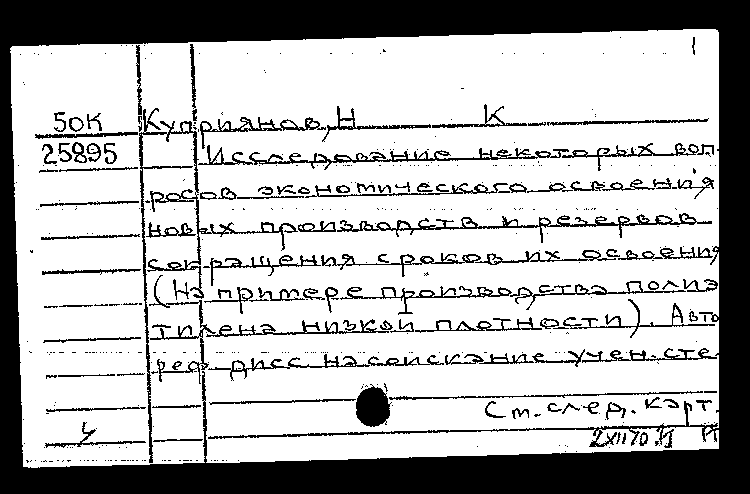 1
50К Куприянов, Н К
25895 Исследование некоторых воп-
росов экономического освоения
новых производств и резервов
сокращения сроков их освоения
(На примере производства полиэ
тилена низкой плотности). Авто
реф дисс на соискание учен. сте.
См. след. карт.
2 XII 70